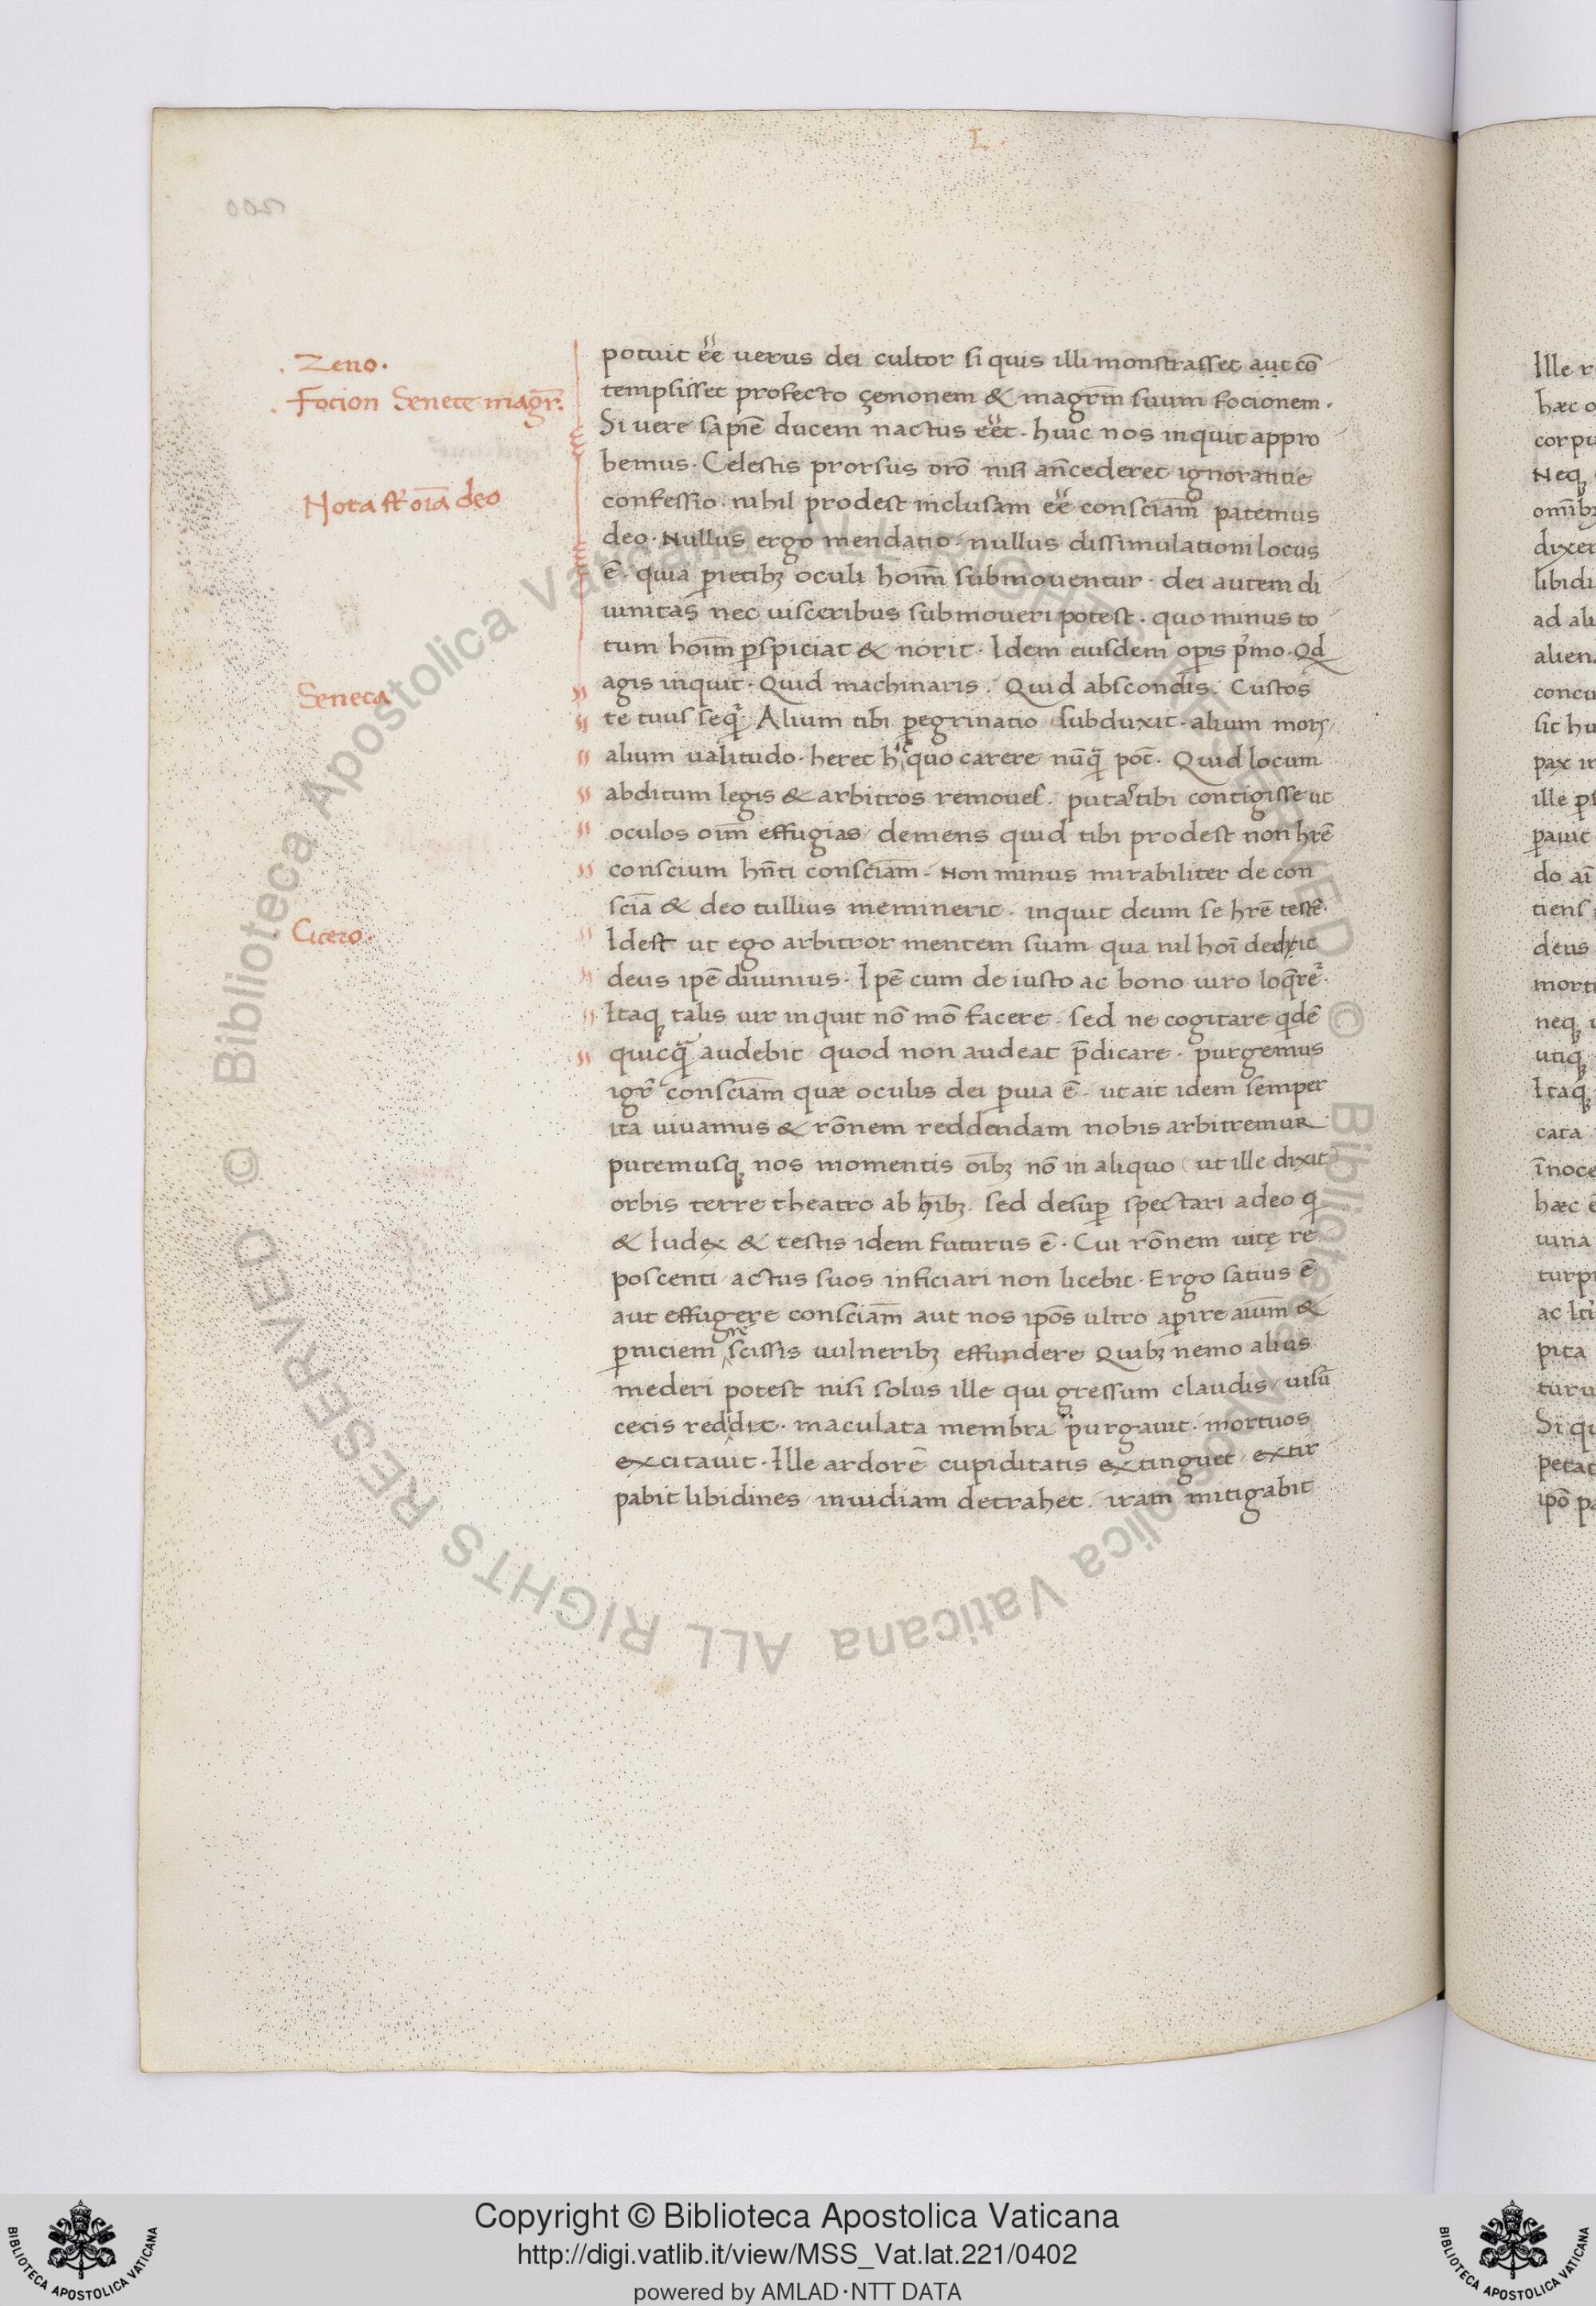 L.
Zeno.
Focion Senece magr̄.
Nota
deo
Seneca
Cicero.
potuit ēē uerus dei cultor si quis illi monstrasset aut cō
tempsisset profecto çenonem & magrm̄ suum focionem.
Si uere sapiē ducem nactus eēt. huic nos inquit appro
bemus. Celestis prorsus orō nisi añcederet ignorantie
confessio. nihil prodest inclusam ēē consciam̄ patemus
deo. Nullus ergo mendatio. nullus dissimulationi locus
ē. quia ꝑietibꝫ oculi hoim̄ submouentur. dei autem di
uinitas nec uisceribus submoueri potest. quo minus to
tum hoim̄ ꝑspiciat & norit. Idem eiusdem oꝑis pͥmo. Qd
agis inquit. Quid machinaris. Quid abscondis. Custos
te tuus seqͬ. Alium tibi ꝑegrinatio subduxit. alium mors
alium ualitudo. heret hͨ quo carere nūꝙ̄ pōt. Quid locum
abditum legis & arbitros remoues. putas tibi contigisse ut
oculos oim̄ effugias/ demens quid tibi prodest non hrē
conscium hn̄ti consciam̄. Non minus mirabiliter de con
scīa & deo tullius meminerit. inquit deum se hrē testē.
Idest ut ego arbitror mentem suam qua nil hoī dedit
deus ipē diuinius. Ipē cum de iusto ac bono uiro loq̄reͬ.
Itaqꝫ talis uir inquit nō mō facere. sed ne cogitare qdē
quicꝙ̄ audebit quod non audeat p̄dicare. purgemus
igͬ consciam̄ quæ oculis dei ꝑuia ē. ut ait idem semper
ita uiuamus & rōnem reddendam nobis arbitremur
putemusqꝫ nos momentis oībꝫ nō in aliquo (ut ille dixit)
orbis terre theatro ab hībꝫ. sed desuꝑ spectari a deo q
& Iudex & testis idem futurus ē. Cui rōnem uitę re
poscenti actus suos inficiari non licebit. Ergo satius ē
aut effugere consciam̄ aut nos ipōs ultro aꝑire aium̄ &
ꝑniciem scissis uulneribꝫ effundere Quibꝫ nemo alius
mederi potest nisi solus ille qui gressum claudis/ uisū
cecis reddidit. maculata membra purgauit. mortuos
excitauit. Ille ardorē cupiditatis extinguet/ extir
pabit libidines/ inuidiam detrahet. iram mitigabit
Ille
hæc
Neqꝫ
ad
sic hu
pax
deus
neqꝫ
Itaqꝫ
cata
hæc
uina
pita
Si qu
© Biblioteca Apostolica Vaticana ALL RIGHTS RESERVED © Biblioteca Apostolica Vaticana ALL RIGHTS RESERVED
Copyright © Biblioteca Apostolica Vaticana
http://digi.vatlib.it/view/MSS_Vat.lat.221/0402
powered by AMLAD·NTT DATA
BIBLIOTECA APOSTOLICA VATICANA
BIBLIOTECA APOSTOLICA VATICANA